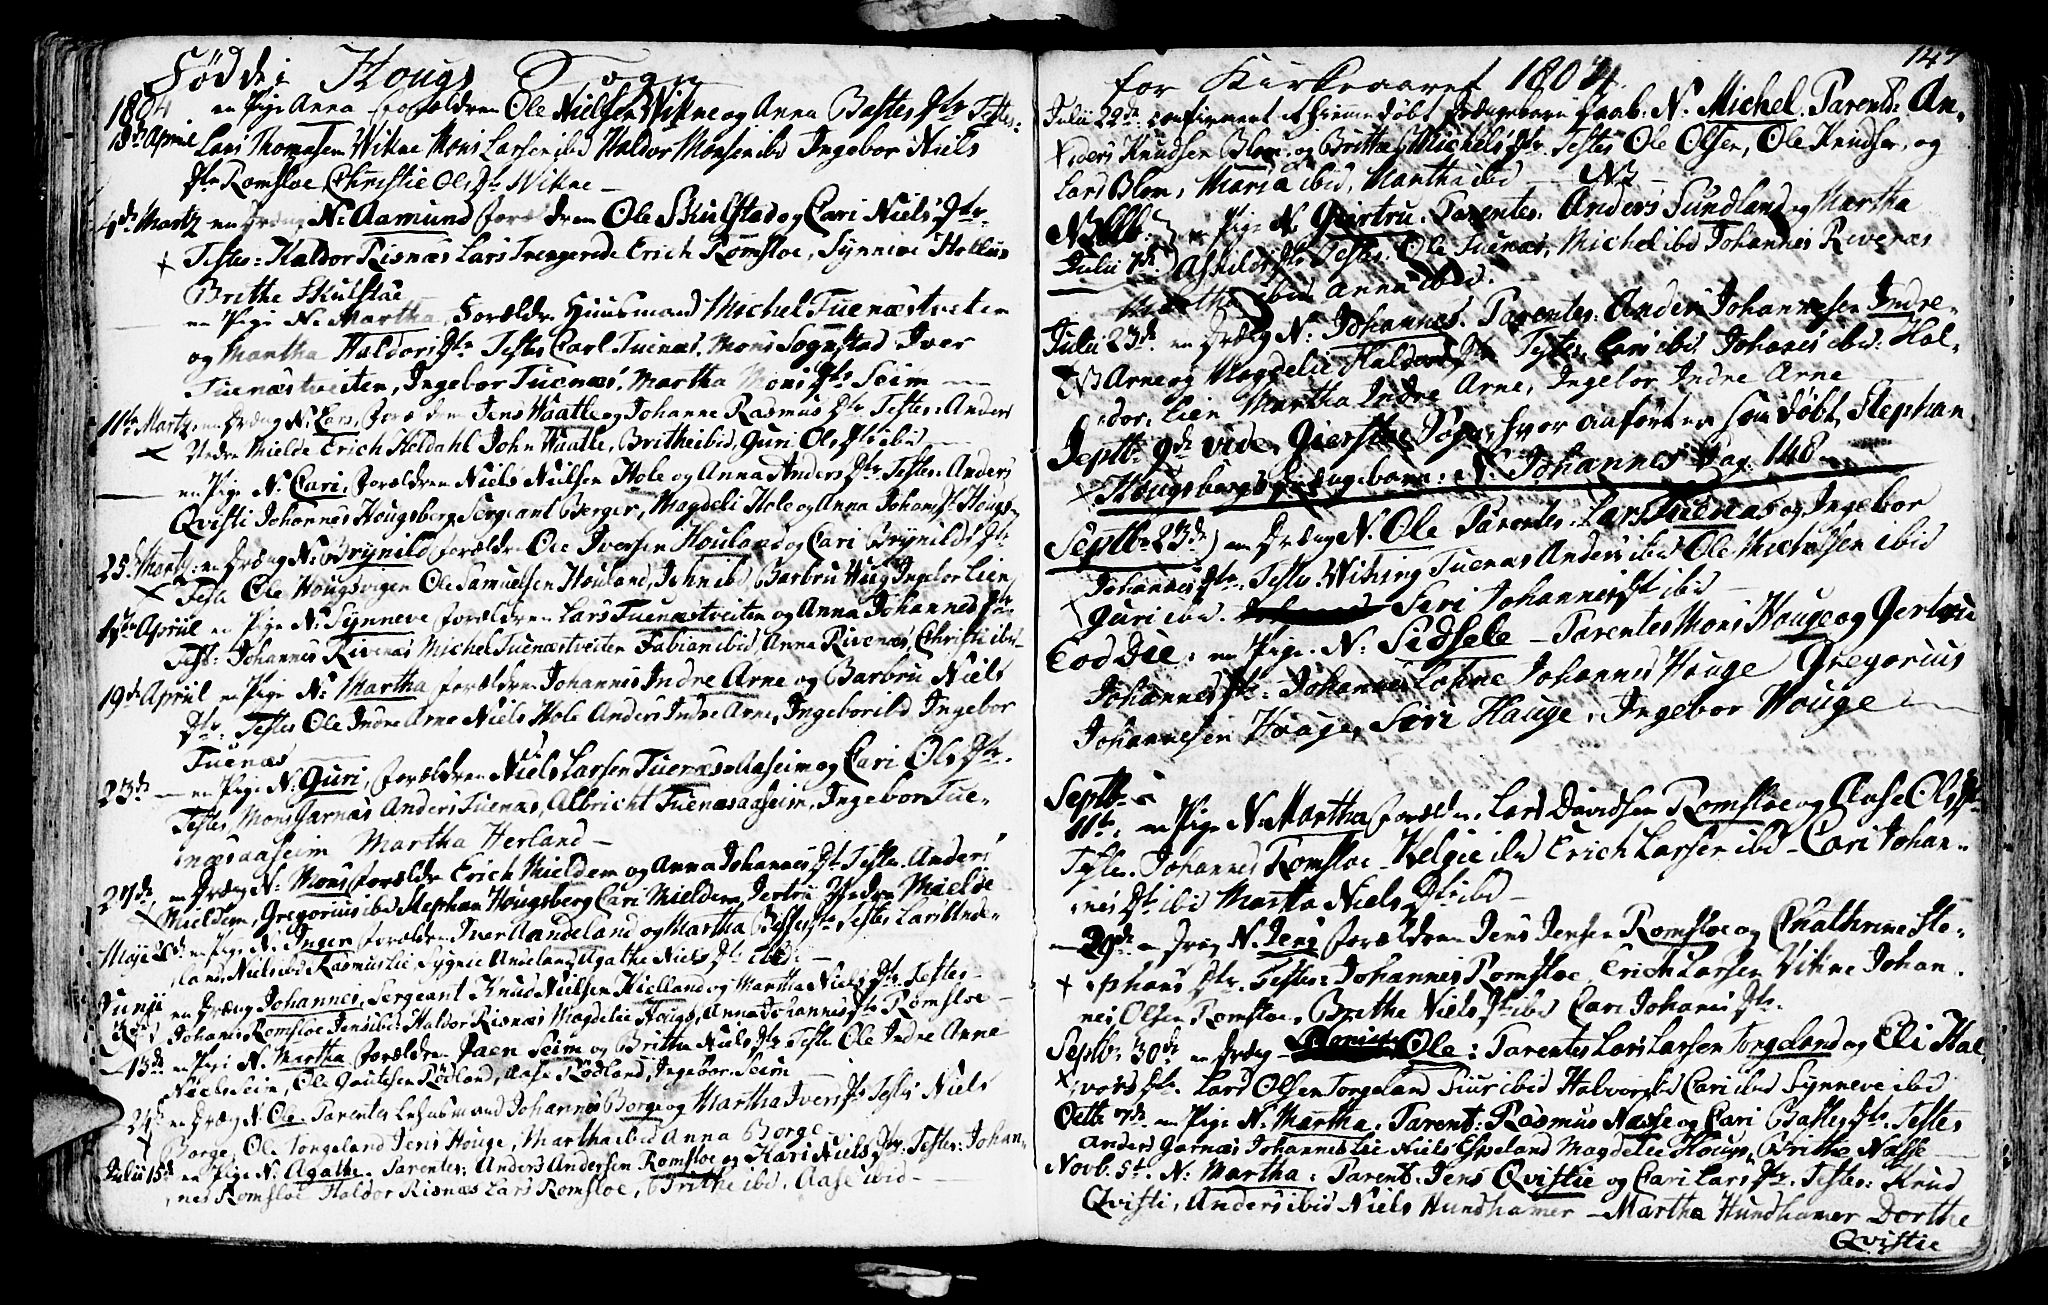 Fødde i Hougs Sogn
1804 en Pige Anna forældren Ole Nielsen Wikne og Anna Bastes Dtr Testes:
13de Apriil Lars Thomasen Wikne Mons Larsen ibid Haldor Monsen ibid Ingebor Niels
Dtr Romsloe, Christie Ols Dtr Wikne –
4de Martz en Dreng N: Aamund forældren Ole Skulstad og Cari Niels Dtr
Testes: Haldor Risnæs Lars Trengerede Erich Romsloe, Synneve
Brithe Skulstae
en Pige N: Martha, Forældre Huusmand Michel Tuenæstveten
og Martha Haldors Dtr Testes Carl Tuenæs. Mons Sognstad Iver
Tuenæstveiten, Ingebor Tuenæs, Martha Mons Dtr Seim
11te Martz en Dreng N: Lars, forældren Jens Waatle og Johanne Rasmus Dtr Testes: Anders
Nedre Mielde Erich Heldahl John Waatle, Brithe ibid, Guri Ols Dtr ibid
en Pige N: Cari, forældren Niels Nielsen Hole og Anna Anders Dtr Testes: Anders
Qvisti Johannes Hougsberg Sergeant Berger, Magdeli Hole og Anna Johans Dr Hougs
25. Martz: en Dreng N: Brynild forældre Ole Iversen Houland og Cari Brynilds Dtr
Test Ole Hougsvigen Ole Samuelsen Houland, John ibid Barbru Hug Ingebor Lien
Apriil en Pige N: Synneve forældren Lars Tuenæstveiten og Anna Johannes Dtr
Test: Johannes Rivenæs Michel Tuenæstveiten Fabian ibid, Anna Rivenæs, Christi ibid
19de Apriil en Pige N: Martha, forældren Johannes Indre Arne og Barbru Niels
Dtr. Testes Ole Indre Arne Niels Hole Anders Indre Arne, Ingebor ibid Ingebor
Tuenæs
23de – en Pige N: Guri, forældren Niels Larsen Tuenæsaaseim og Cari Ols Dtr.
Testes Mons Garnæs Anders Tuenæs, Albricht Tuenæsaaseim, Ingebor Tue-
næsaaseim Martha Herland –
27de en Dreng N: Mons forældre Erich Mieldem og Anna Johannes Dtr Testes. Anders
Mieldem, Gregorius ibid Stephan Hougsberg Cari Mieldem, Jertru Nedre Mielde
Maji en Pige N. Inger forældren Iver Aandeland og Martha Testes Lars Ande-
land, Niels ibid Rasmus Lie, Sygnie Andeland Agathe Niels Dtr ibid –
Junii en Dreng Johannes, Sergeant Knud Nielsen Hielland og Martha Niels Dtr. Testes –
Johans Romsloe Jens ibid Haldor Risnæs Magdelie Hougs, Anna Johannes Dtr Romsloe –
13de en Pige N. Martha forældre Paen Seim og Britha Niels Dtr Teste Ole Indre Arne
Niels Seim, Ole Gautesen Rødland, Aase Rødland, Ingebor Seim
24 en Dreng N: Ole. Parentes Johannes Borge og Martha Ivers Dtr Testes Niels
Borge, Ole Tongeland Jens Houge, Martha ibid Anna Borge
Julii 15de en Pige N. Agatha. Parentes: Anders Andersen Romsloe og Kari Niels Dtr: Testes: Johan-
nes Romsloe Haldor Risnæs Lars Romsloe, Brithe ibid, Aase ibid –
147
for Kirkeaaret 1804
Julii 22de confirmeret et hiemmedøbt Drengebarn N. Michel. Parent: An-
ders Knudsen Blom og Britta Michels Dtr. Testes Ole Olsen, Ole Knudsen, og
Lars Blom, Maria ibid, Martha ibid – NB –
NB en Pige N. Giertru. Parentes: Anders Sundland og Martha
Julii Askilds Dtr Testes: Ole Tuenæs, Michel ibid Johannes Rivenæs
Martha ibid Anna ibid.
Julii 23de en Dreng N: Johannes. Parentes. Anders Johannesen Indre-
Arne og Magdelie Haldors Dtr Testes. Lars ibid. Johanes ibid. Hal-
dor Lien Martha Indre Arne, Ingebor Indre Arne
Septb: 9de vide Gierstad Sogn hvor anført er som døbt Stephan
Hougsbergs Drengebarn: N: Johannes Pag: 148 –
Septbr 23de en Dreng N. Ole Parentes. Lars Tuenæs og Ingebor
Johannes Dtr. Testes. Wiking Tuenæs Anders ibid Ole Michelsen ibid
Guri ibid. Siri Johannes Dtr ibid
Eod Die: en Pige. N: Sidsele – Parentes Mons Houge og Gertru
Johannes Dtr: Johannes Tofne Johannes Houge Gregorius
Johannesen Houge, Siri Hauge, Ingebor Houge
Septbr
11te, en Pige N: Martha foreld. Lars Davidsen Romsloe og Aase Ols Dtr
Testes. Johannes Romsloe – Helgie ibid Erich Larsen ibid – Cari Johan-
nes Dtr ibid Martha Niels Dtr ibid –
29de en Dreng N. Jens forældren Jens Jensen Romsloe og Chathrine Ste-
phans Dtr. Testes: Johannes Romsloe Erich Larsen Vikne Johan-
nes Olsen Romsloe, Brithe Niels Dtr ibid Cari Johans Dtr.
Septbr: 30de en Dreng Ole: Parentes Lars Larsen Tongeland og Eli Hal-
vors Dtr. Lars Olsen Tongeland Siur ibid Halvor ibid Cari ibid Synneve ibid
Octb 7de en Pige N. Martha. Parent: Rasmus Næsse og Cari Bastes Dtr. Testes
Anders Garnæs Johannes Lie Niels Espeland Magdelie Hougs, Brithe Næsse
Novb. 5t. N: Martha: Parent. Jens Qvistie og Cari Lars Dtr. Testes: Knud
Qvisti, Anders ibid Niels Hundhamer – Martha Hundhamer Dorthe
Qvistie